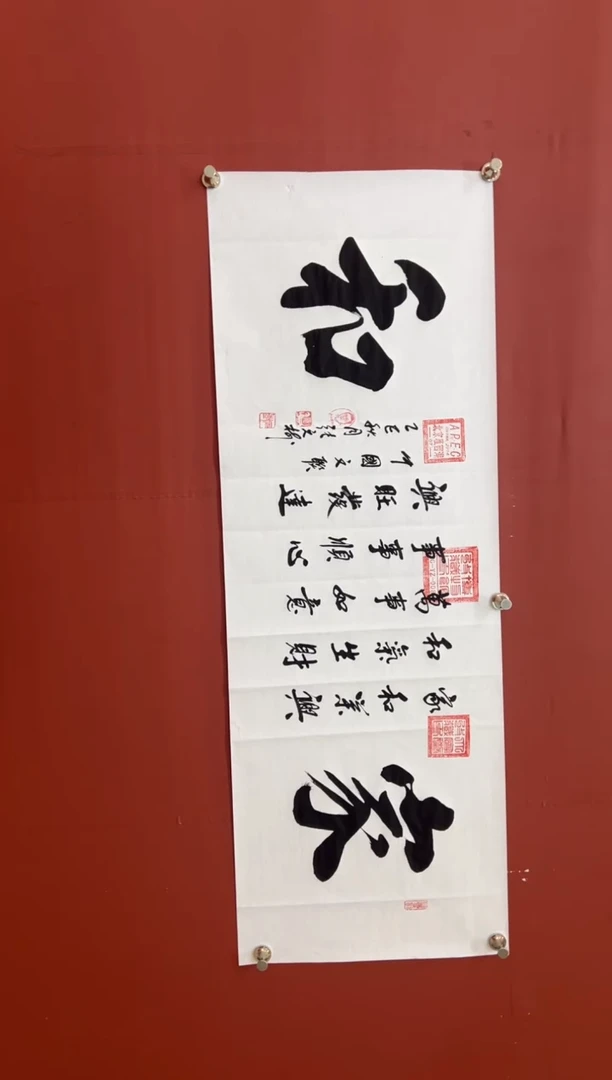 家
家和業興
和氣生財
萬事如意
事事順心
興旺發達
中國文聯
乙巳秋月
和
APEC